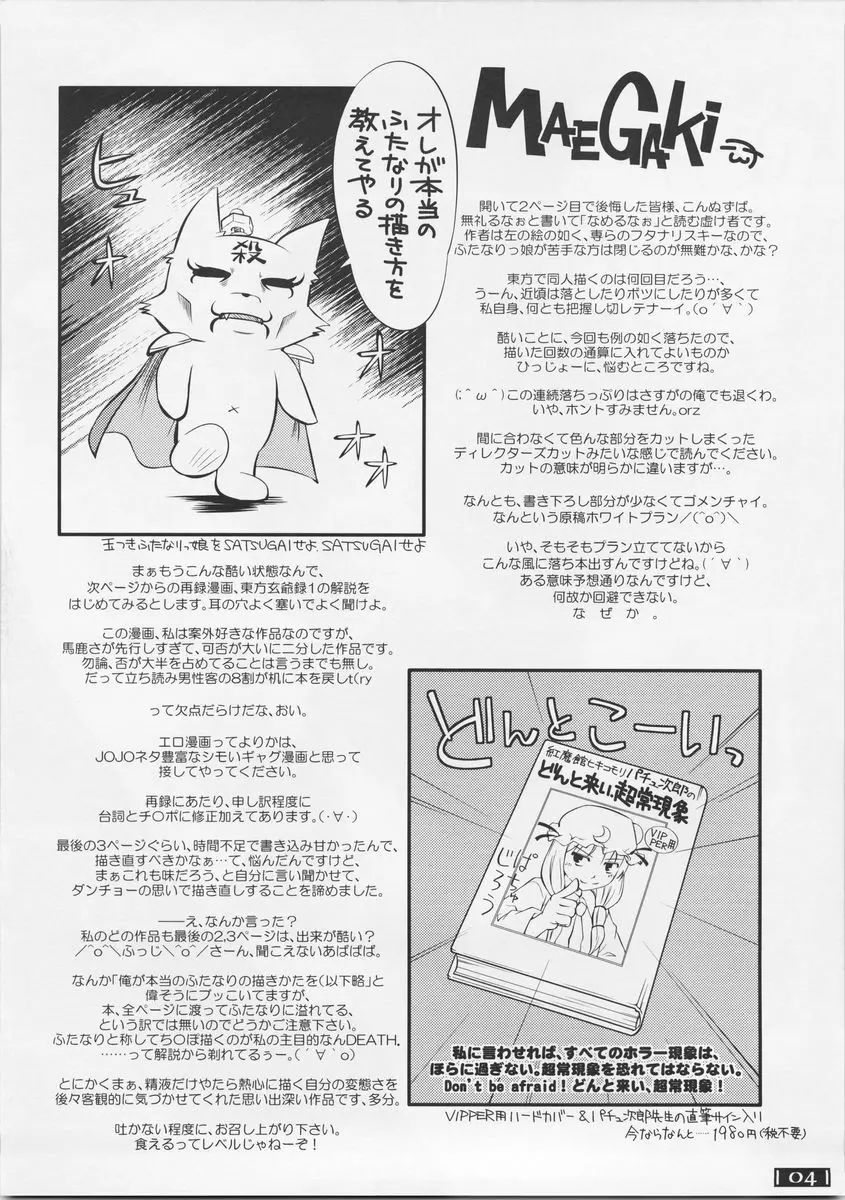 MAEGAKi
開いて2ページ目で後悔した皆様、こんぬずば。
無礼るなぉと書いて「なめるなぉ」と読む虚け者です。
作者は左の絵の如く、専らのフタナリスキーなので、
ふたなりっ娘が苦手な方は閉じるのが無難かな、かな?
東方で同人描くのは何回目だろう…、
うーん、近頃は落としたりボツにしたりが多くて
私自身、何とも把握し切レテナーイ。(о´∀`)
酷いことに、今回も例の如く落ちたので、
描いた回数の通算に入れてよいものか
ひっじょーに、悩むところですね。
(;^ω^)この連続落ちっぷりはさすがの俺でも退くわ。
いや、ホントすみません。orz
間に合わなくて色んな部分をカットしまくった
ディレクターズカットみたいな感じで読んでください。
カットの意味が明らかに違いますが…。
なんとも、書き下ろし部分が少なくてゴメンチャイ。
なんという原稿ホワイトプラン/(^o^)\
いや、そもそもプラン立ててないから
こんな風に落ち本出すんですけどね。(´∀`)
ある意味予想通りなんですけど、
何故か回避できない。
なぜか。
オレが本当の
ふたなりの描き方を
教えてやる
ヒュ
オオオ
殺
玉つきふたなりっ娘をSATSUGAIせよ、SATSUGAIせよ
まぁもうこんな酷い状態なんで、
次ページからの再録漫画、東方玄爺録1の解説を
はじめてみるとします。耳の穴よく塞いでよく聞けよ。
この漫画、私は案外好きな作品なのですが、
馬鹿さが先行しすぎて、可否が大いに二分した作品です。
勿論、否が大半を占めてることは言うまでも無し。
だって立ち読み男性客の8割が机に本を戻しt(ry
って欠点だらけだな、おい。
エロ漫画ってよりかは、
JOJOネタ豊富なシモいギャグ漫画と思って
接してやってください。
再録にあたり、申し訳程度に
台詞とチ○ポに修正加えてあります。(・∀・)
最後の3ページぐらい、時間不足で書き込み甘かったんで、
描き直すべきかなぁ…て、悩んだんですけど、
まぁこれも味だろう、と自分に言い聞かせて、
ダンチョーの思いで描き直しすることを諦めました。
――え、なんか言った?
私のどの作品も最後の2,3ページは、出来が酷い?
/^o^\ふっじ\^o^/さーん、聞こえないあばばば。
なんか「俺が本当のふたなりの描きかたを(以下略)」と
偉そうにブッこいてますが、
本、全ページに渡ってふたなりに溢れてる、
という訳では無いのでどうかご注意下さい。
ふたなりと称してち○ぽ描くのが私の主目的なんDEATH.
……って解説から剥れてるぅー。(´∀`о)
とにかくまぁ、精液だけやたら熱心に描く自分の変態さを
後々客観的に気づかせてくれた思い出深い作品です、多分。
吐かない程度に、お召し上がり下さい。
食えるってレベルじゃねーぞ!
どんとこーいっ
紅魔館ヒキコモリパチュ次郎の
どんと来い、超常現象
VIP
PER用
ぱちゅ
じろう
私に言わせれば、すべてのホラー現象は、
ほらに過ぎない。超常現象を恐れてはならない。
Don't be afraid!どんと来い、超常現象!
VIPPER用ハードカバー&パチュ次郎先生の直筆サイン入り
今ならなんと……1980円(税不要)
04